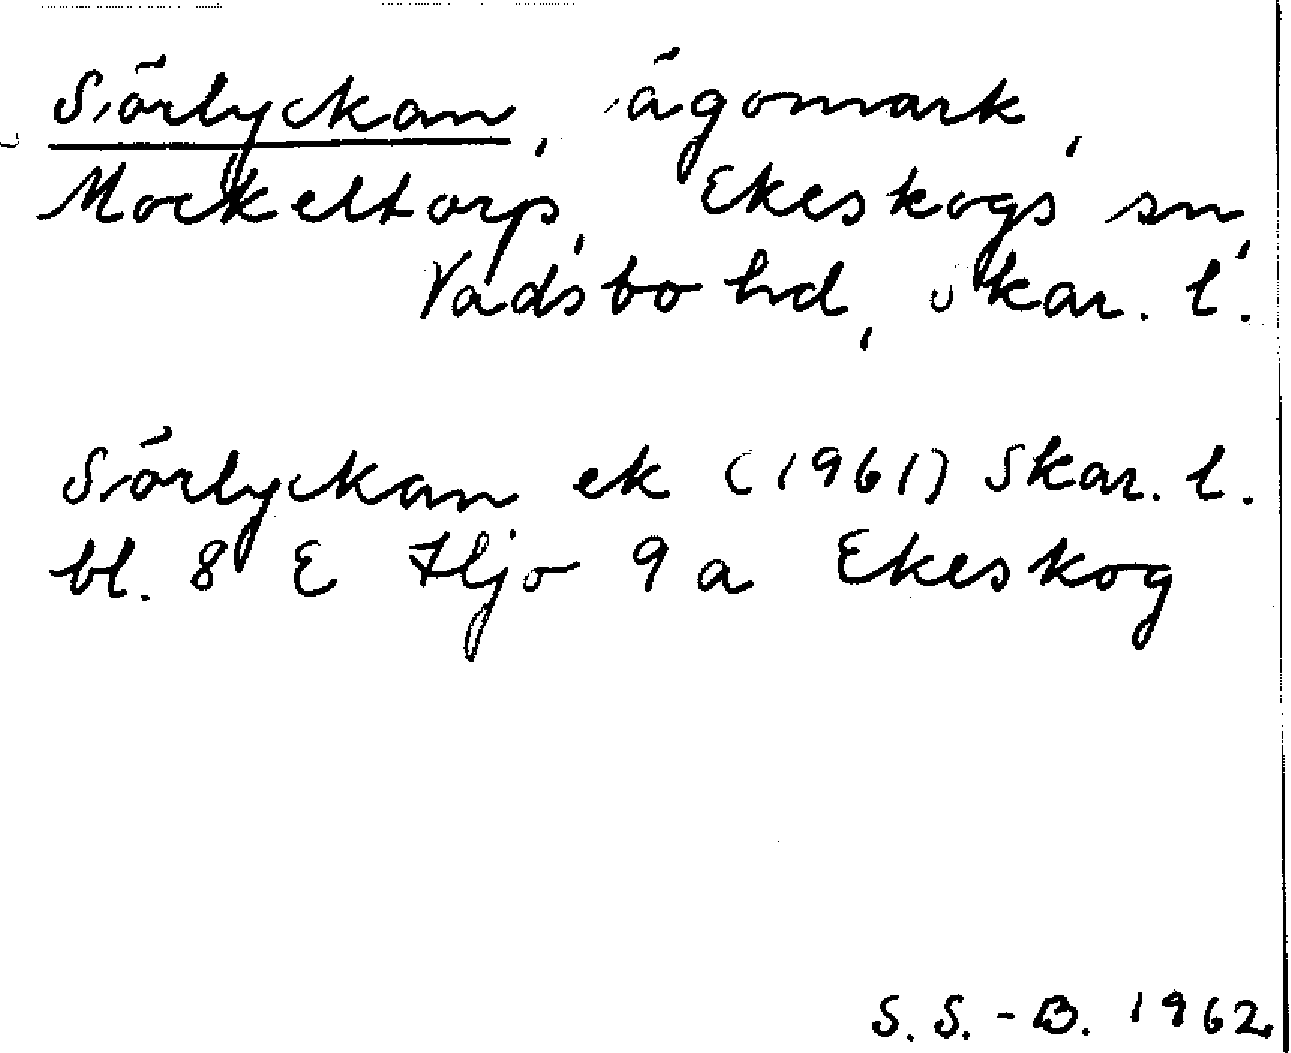 Sörlyckan, ägomark,
Mockeltorp, Ekeskogs sn,
Vadsbo hd, Skar. l.
Sörlyckan ek (1961) Skar. l.
bl. 8 E Hjo 9 a Ekeskog
S. S. - B. 1962.